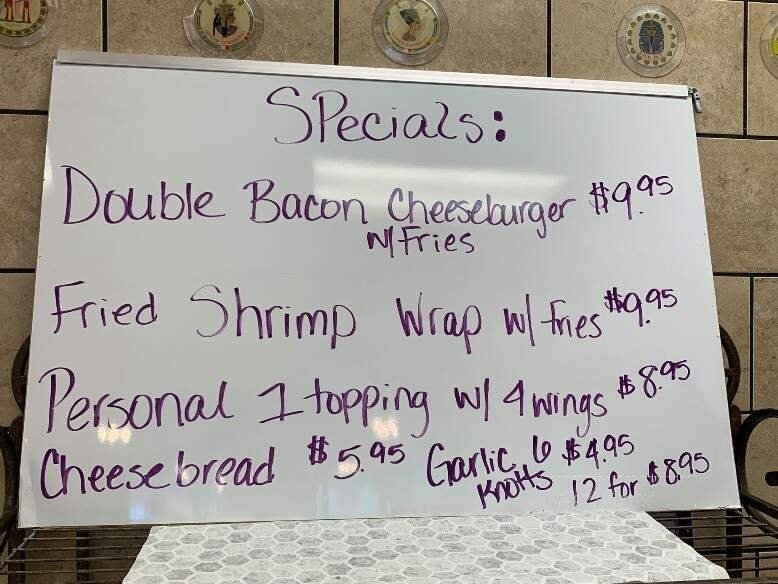 SPecials:
Double Bacon Cheeseburger $9.95
w/ Fries
Fried Shrimp Wrap w/ fries $9.95
Personal 1 topping w/ 4 wings $8.95
Cheesebread $5.95 Garlic 6 $4.95
Knotts 12 for $8.95